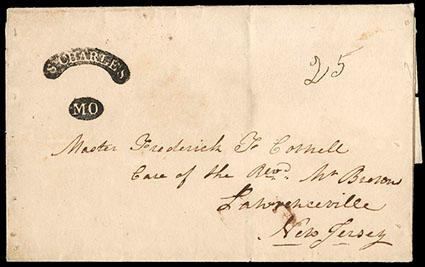 St CHARLES
25
MO
Master Frederick F Cornell
Care of the Revd. Mr Brown
Lawrenceville
New Jersey